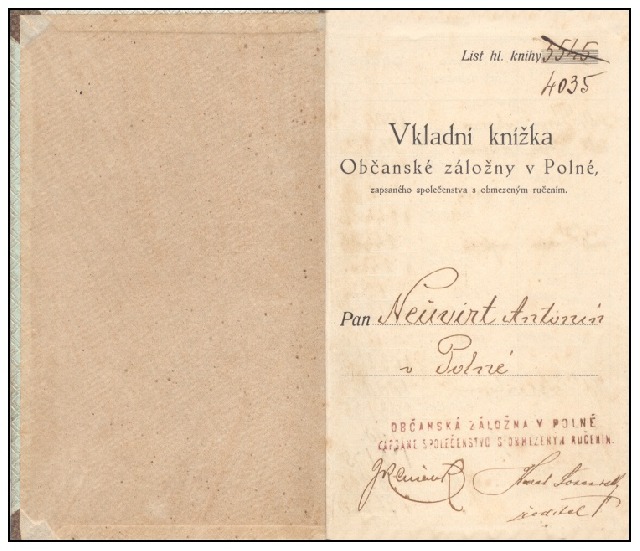 List hl. knihy 5545
4035
Vkladní knížka
Občanské záložny v Polné,
zapsaného společenstva s obmezeným ručením.
Pan Neüvirt Antonín
v Polné
OBČANSKÁ ZÁLOŽNA V POLNÉ
ZAPSANÉ SPOLEČENSTVO S OBMEZENÝM RUČENÍM.
ředitel